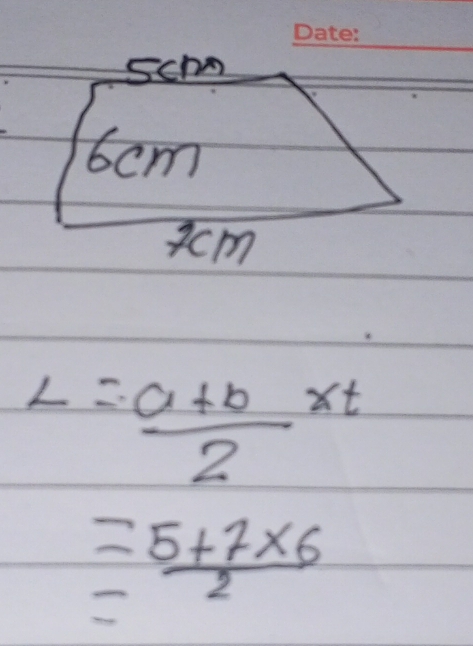 Date:
5cm
6cm
7cm
L = a+b xt
2
= 5+7x6
2
=